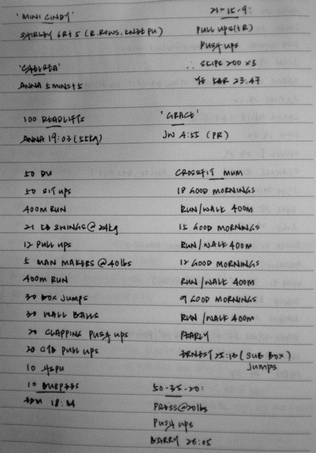 'MINI CINDY'
SHIRLEY 6R+5 (R.ROWS, KNEE PU)
'CHELSEA'
ANNA 5MINS+5
100 DEADLIFTS
ANNA 19:03 (55kg)
50 DU
50 SIT UPS
400M RUN
21 KB SWINGS @ 24kg
12 PULL UPS
5 MAN MAKERS @ 40lbs
400M RUN
30 BOX JUMPS
30 WALL BALLS
20 CLAPPING PUSH UPS
20 CTB PULL UPS
10 HSPU
10 BURPEES
21-15-9:
PULL UPS (JR)
PUSH UPS
SKIPS 200 x3
23.47
'GRACE'
JW 4:55 (PR)
CROSSFIT MUM
18 GOOD MORNINGS
RUN/WALK 400M
15 GOOD MORNINGS
RUN/WALK 400M
12 GOOD MORNINGS
RUN/WALK 400M
9 GOOD MORNINGS
RUN/WALK 400M
PEARLY
25:13 (SUB BOX JUMPS)
50-35-20:
PRESS @20lbs
PUSH UPS
BARRY 26:05